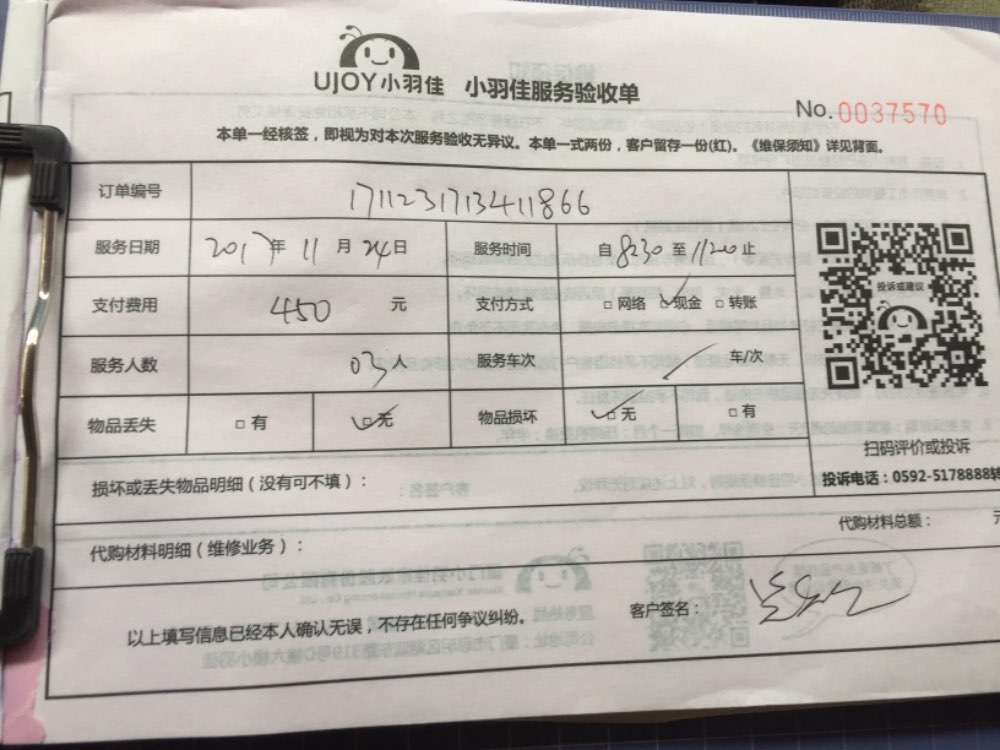 UJOY小羽佳 小羽佳服务验收单
No.0037570
本单一经核签，即视为对本次服务验收无异议。本单一式两份，客户留存一份(红)。《维保须知》详见背面。
订单编号 1711231713411866
服务日期 2017年 11 月 24日 服务时间 自 830 至 1120 止
支付费用 450 元 支付方式 □ 网络 □ 现金 □ 转账
服务人数 03 人 服务车次 车/次
物品丢失 □ 有 □ 无 物品损坏 □ 无 □ 有
投诉或建议
扫码评价或投诉
投诉电话：0592-5178888转
损坏或丢失物品明细（没有可不填）：
代购材料总额： 元
代购材料明细（维修业务）：
以上填写信息已经本人确认无误，不存在任何争议纠纷。
客户签名：